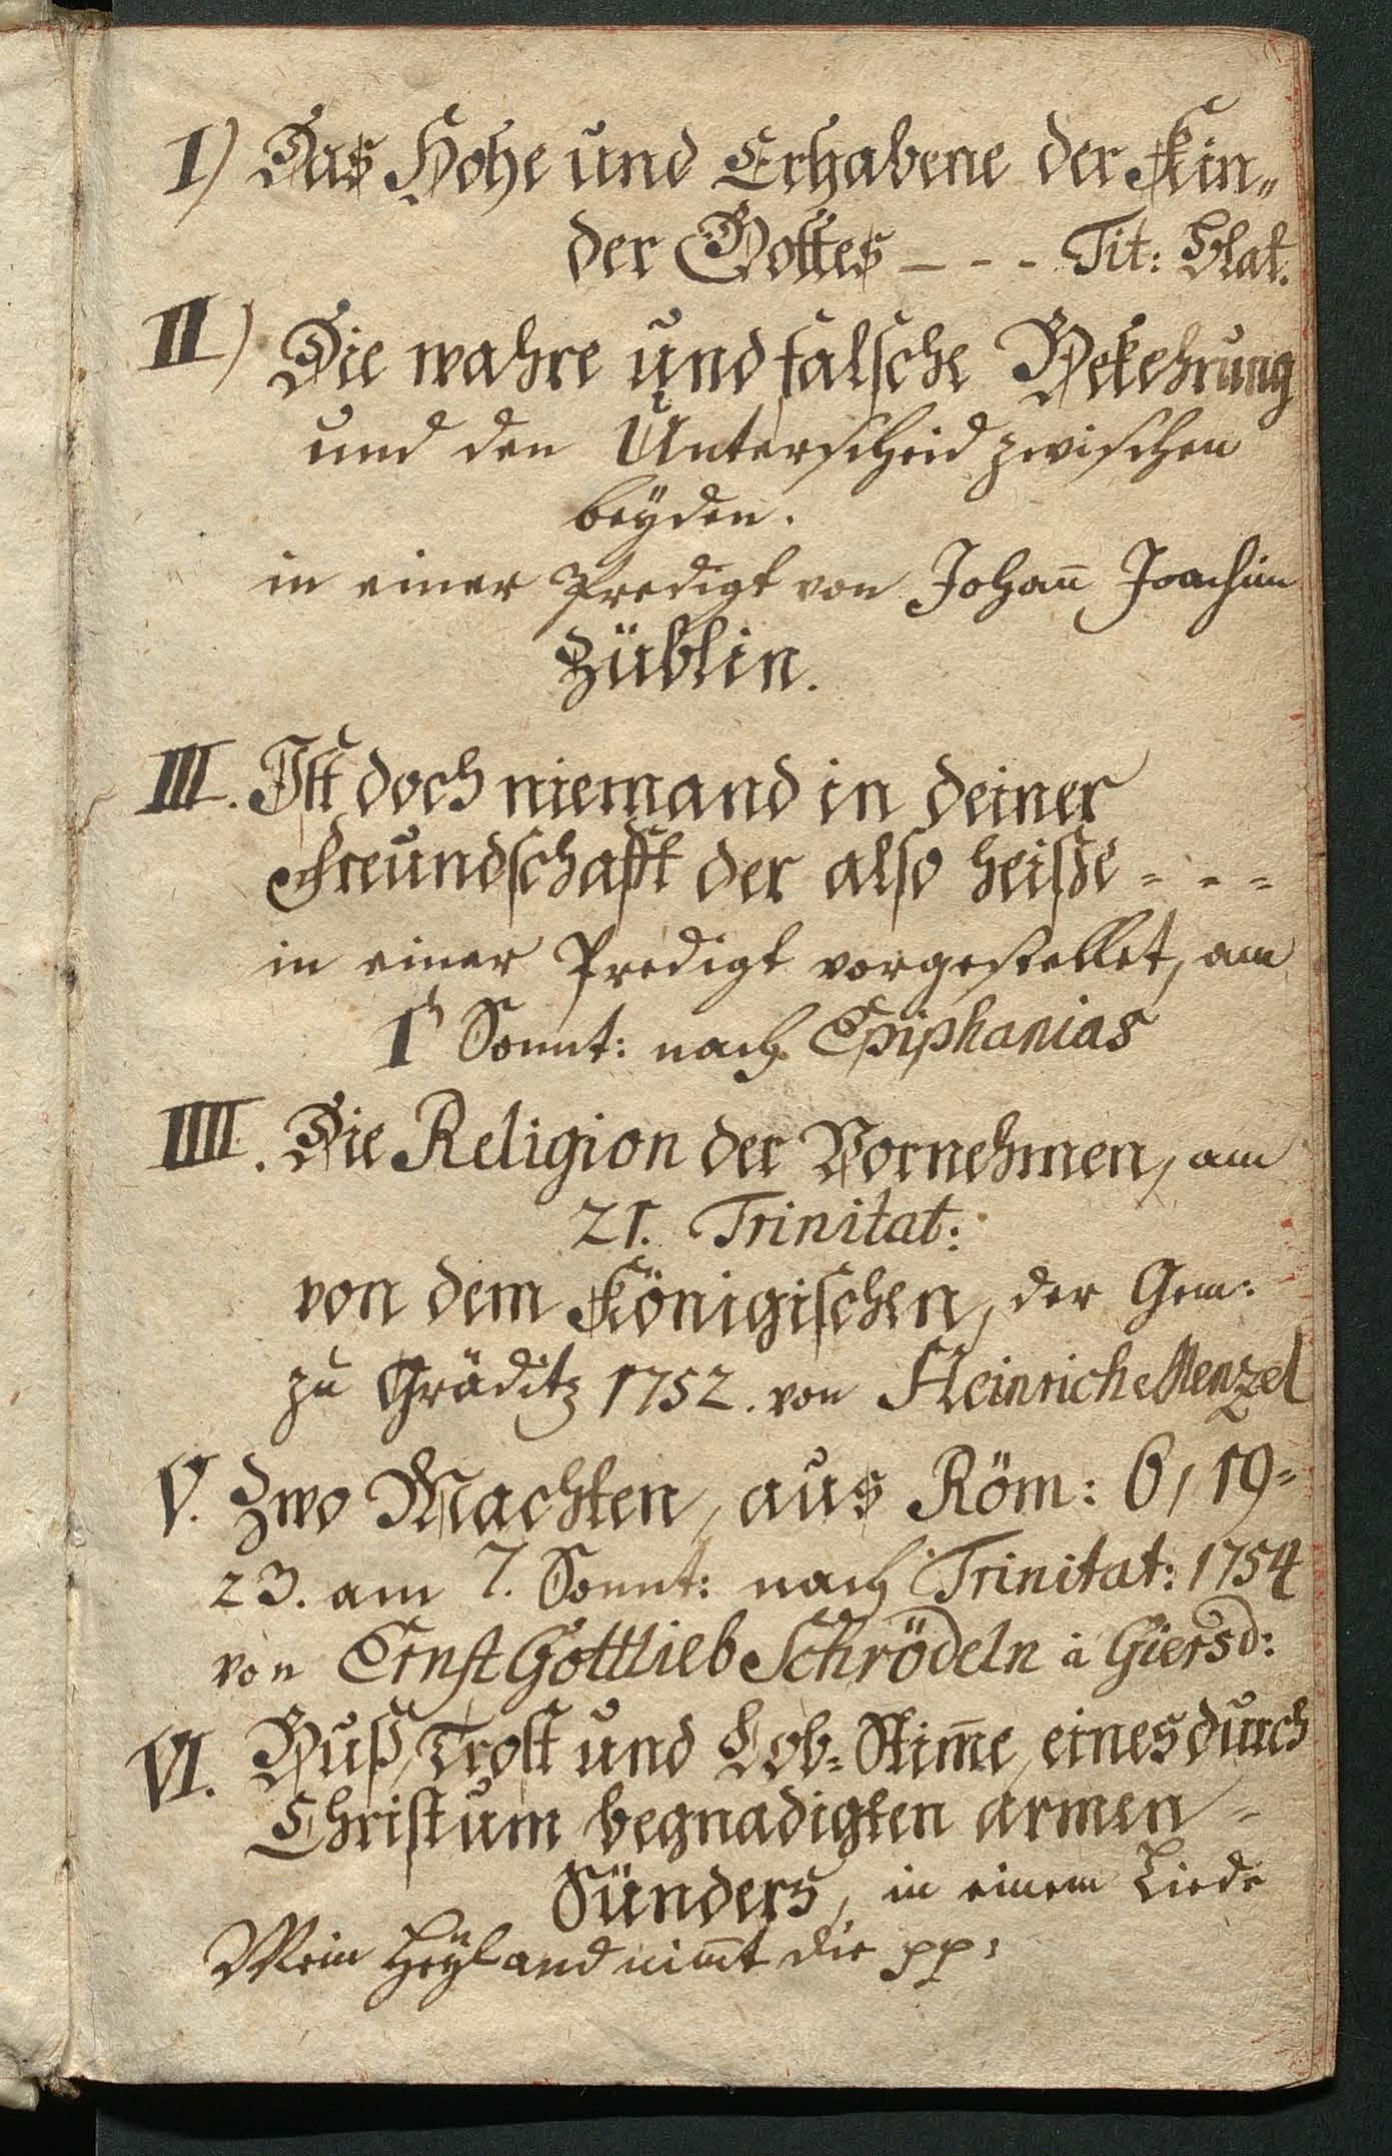 I) Das Hohe und Erhabene der Kin„
der Gottes - - - Tit: Blat.
II) Die wahre und falsche Bekehrung
und den Unterscheid zwischen
beÿden.
in einer Predigt von Johan̄ Joachim
Züblin.
III. Ist doch niemand in deiner
Freundschafft der also heisse = = =
in einer Predigt vorgestellet, am
1 Sonnt: nach Epiphanias
IIII. Die Religion der Vornehmen, am
21. Trinitat:
von dem Königischen, der Gem:
zu Gräditz 1752. von Heinrich Menzel
V. Zwo Machten, aus Röm: 6, 19=
23. am 7. Sonnt: nach Trinitat: 1754
von Ernst Gottlieb Schrödeln à Giersd:
VI. Buß, Trost und Lob=Stim̄e eines durch
Christum begnadigten armen =
Sünders, in einem Liede
Mein Heÿland nim̄t die pp: